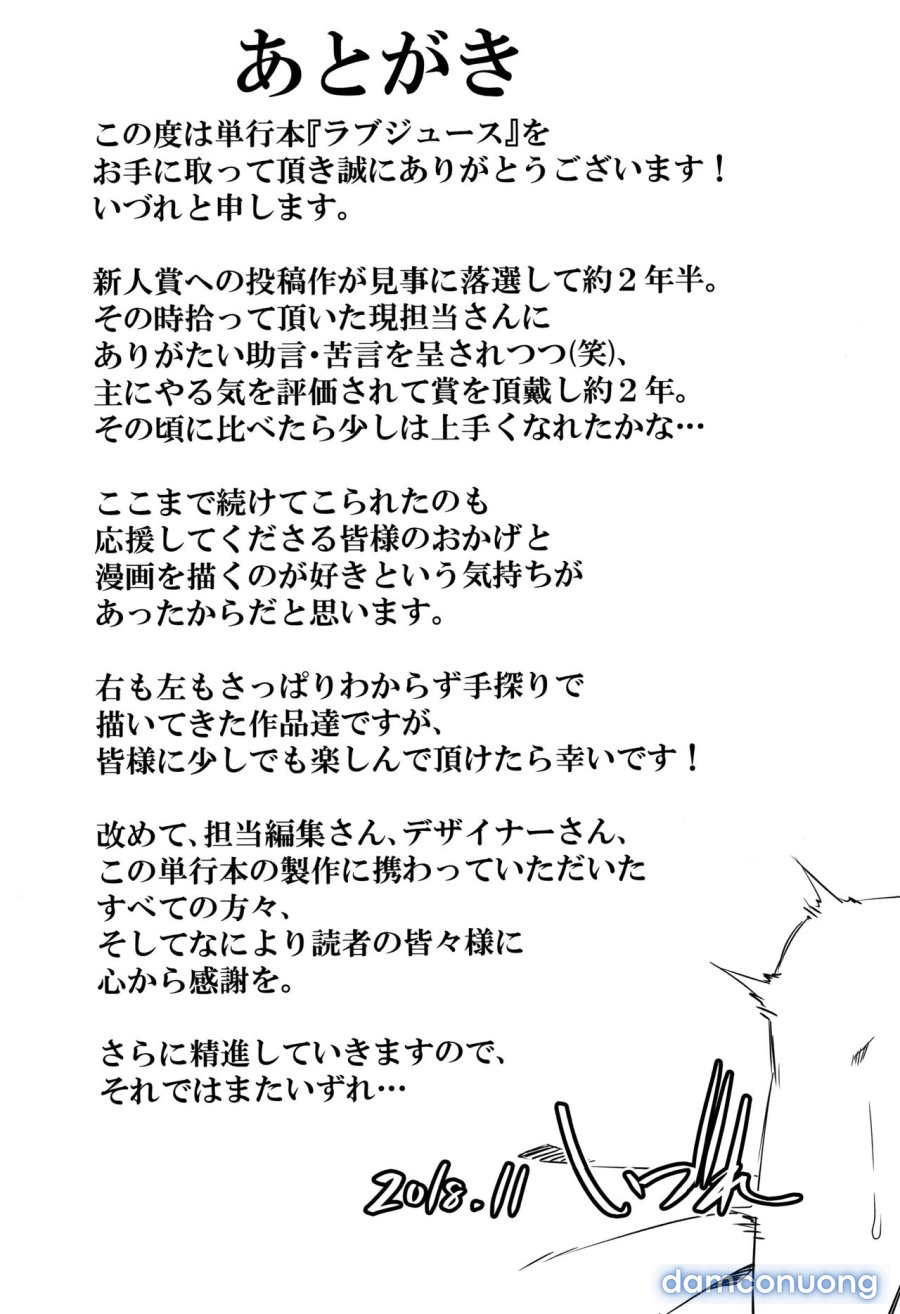 あとがき
この度は単行本『ラブジュース』を
お手に取って頂き誠にありがとうございます！
いづれと申します。
新人賞への投稿作が見事に落選して約２年半。
その時拾って頂いた現担当さんに
ありがたい助言・苦言を呈されつつ(笑)、
主にやる気を評価されて賞を頂戴し約２年。
その頃に比べたら少しは上手くなれたかな…
ここまで続けてこられたのも
応援してくださる皆様のおかげと
漫画を描くのが好きという気持ちが
あったからだと思います。
右も左もさっぱりわからず手探りで
描いてきた作品達ですが、
皆様に少しでも楽しんで頂けたら幸いです！
改めて、担当編集さん、デザイナーさん、
この単行本の製作に携わっていただいた
すべての方々、
そしてなにより読者の皆々様に
心から感謝を。
さらに精進していきますので、
それではまたいずれ…
2018.11 いづれ
damconuong